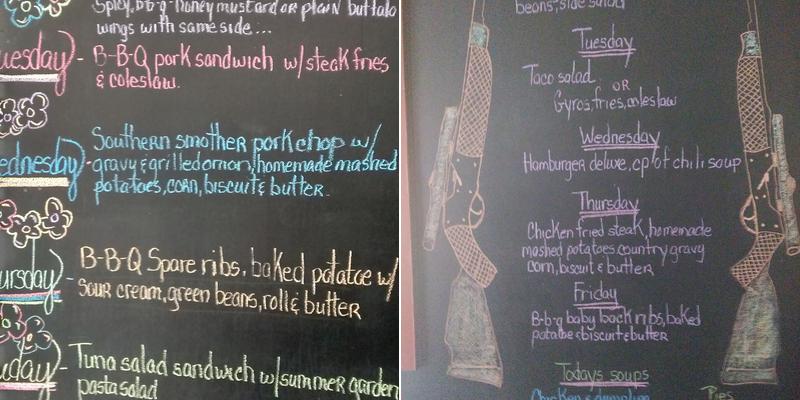 Spicy, b-b-q honey mustard or plain buffalo
wings with same side...
uesday - B-B-Q pork sandwich w/ steak fries
& coleslaw.
Southern smother pork chop w/
ednesday - gravy & grilled onion, homemade mashed
potatoes, corn, biscuit & butter.
B-B-Q Spare ribs, baked potatoe w/
ursday - sour cream, green beans, roll & butter
iday - Tuna salad sandwich w/ summer garden
pasta salad
beans, side salad
Tuesday
Taco salad
OR
Gyros fries, coleslaw
Wednesday
Hamburger deluxe, cp of chili soup
Thursday
Chicken fried steak, homemade
mashed potatoes country gravy
corn, biscuit & butter
Friday
B-b-q baby back ribs, baked
potatoe & biscuit & butter
Todays soups
Chicken & dumpling
Pies